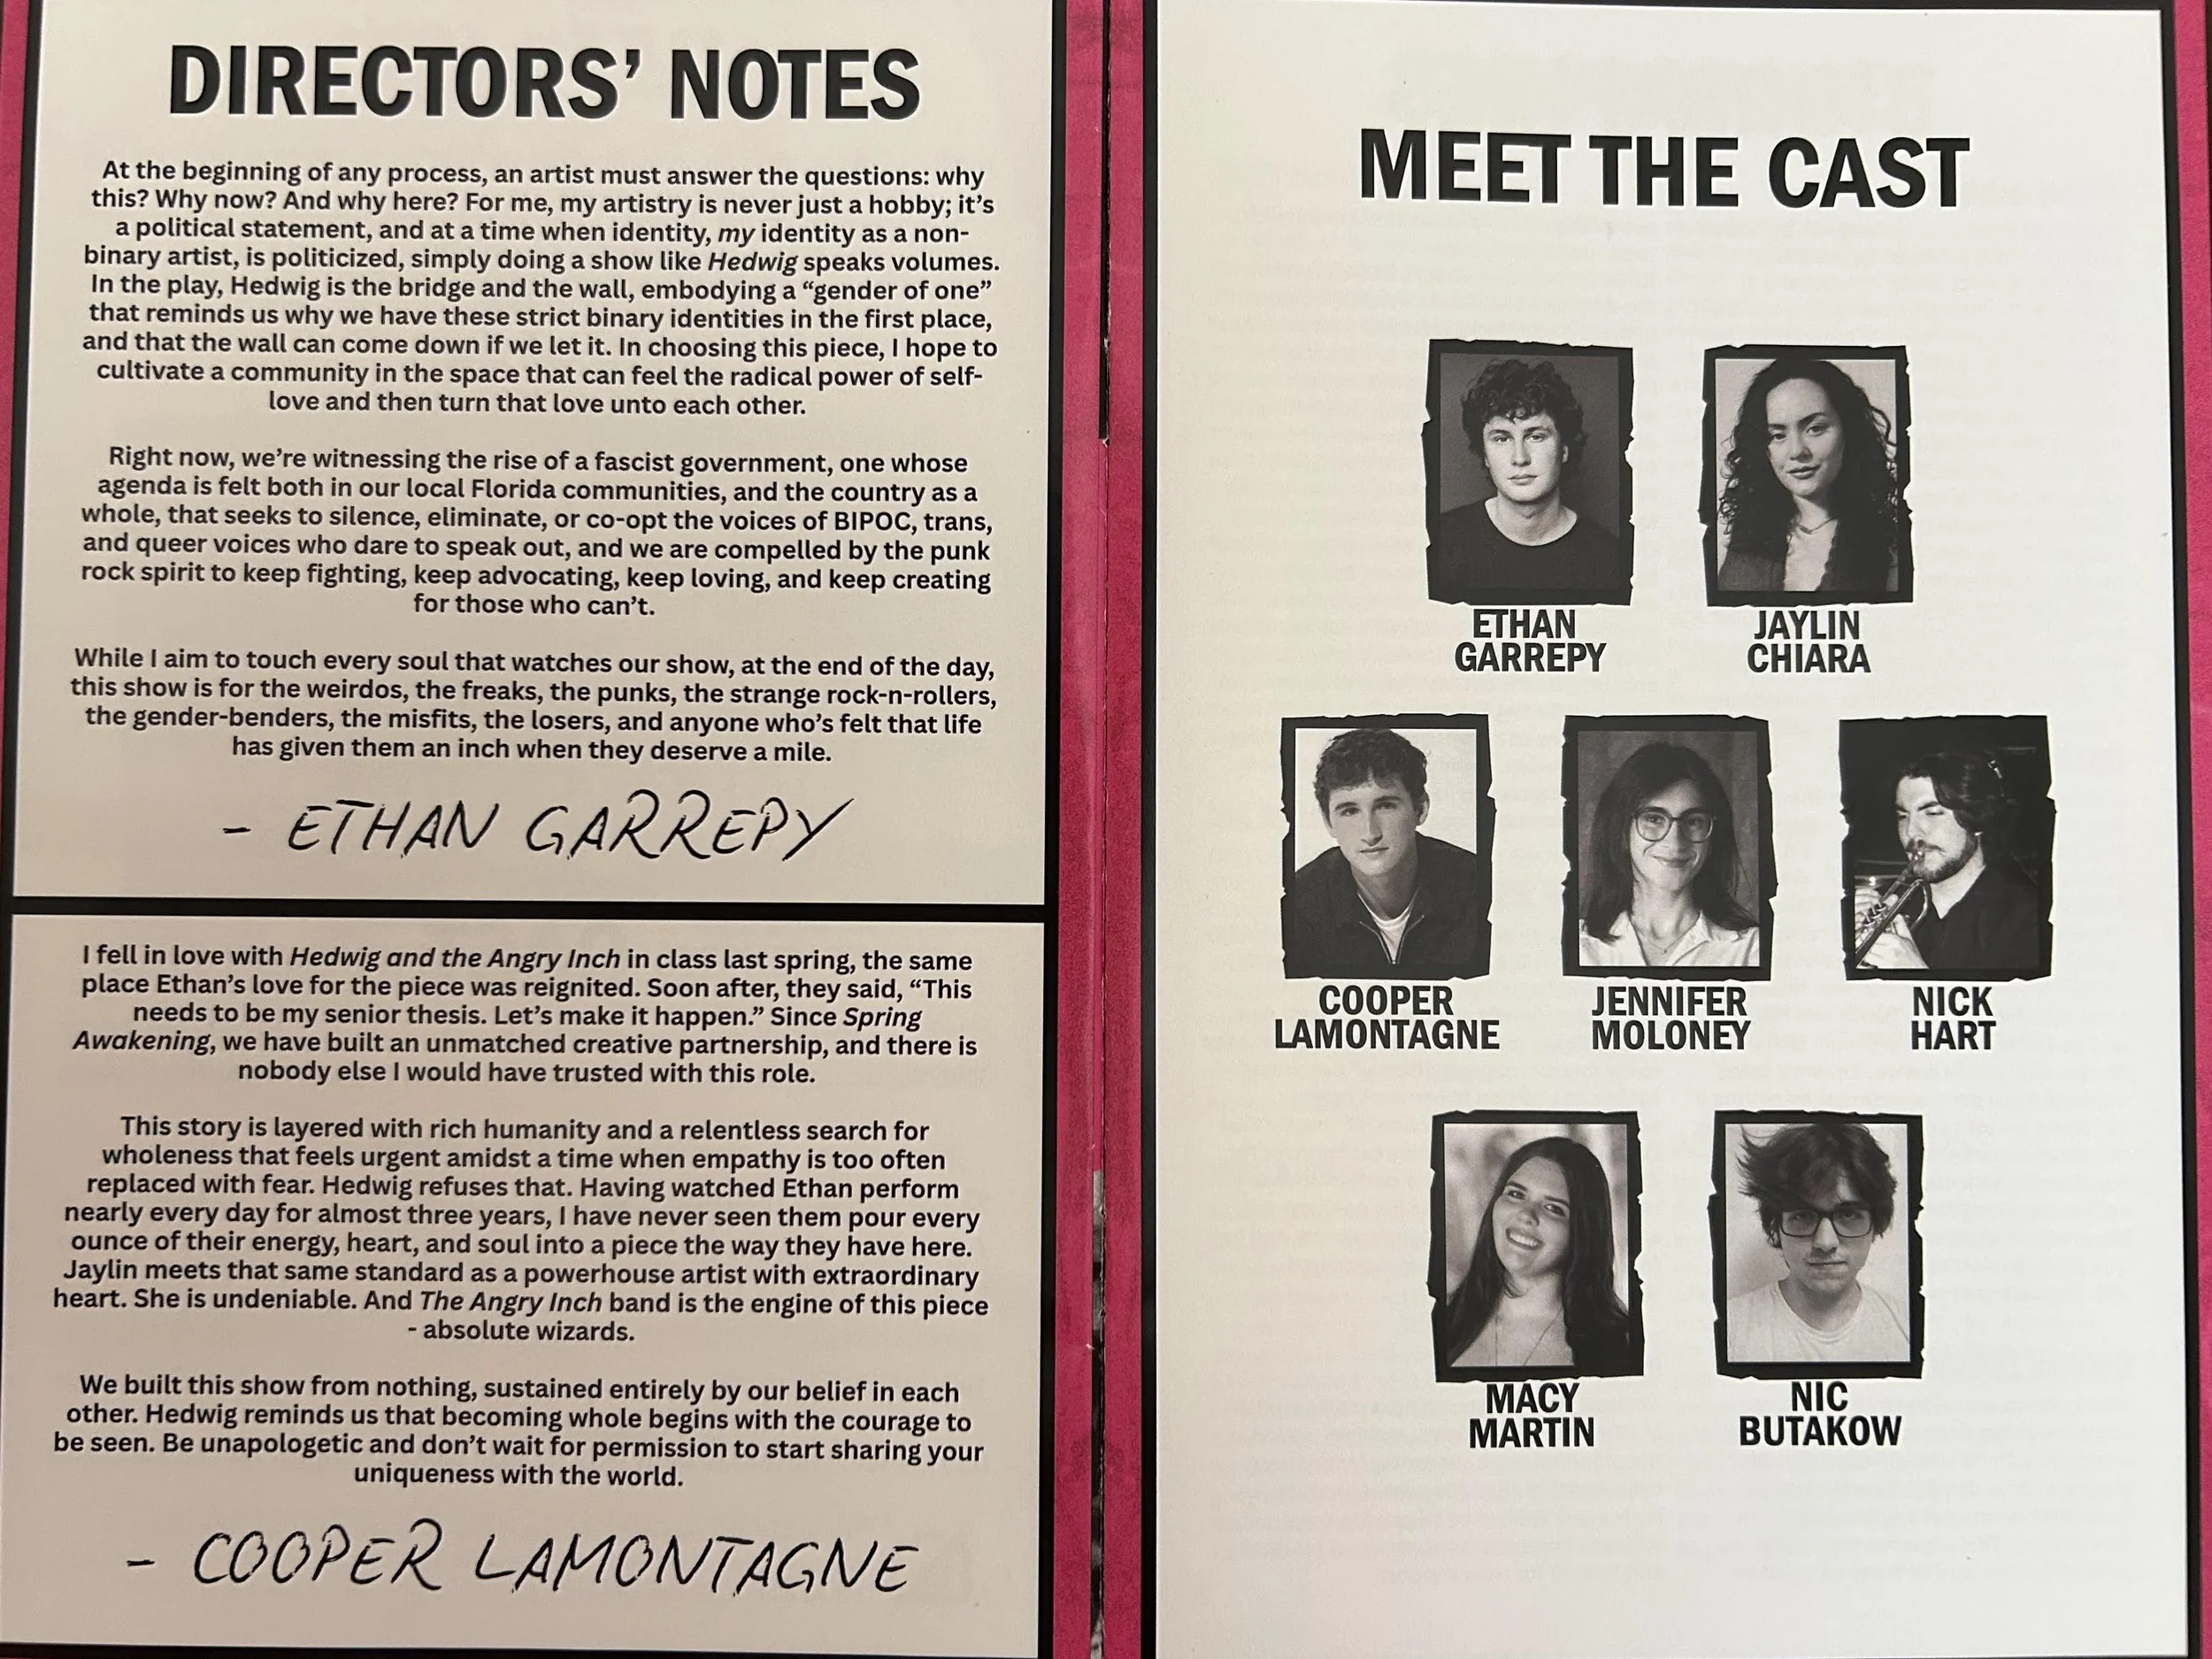 DIRECTORS' NOTES
At the beginning of any process, an artist must answer the questions: why
this? Why now? And why here? For me, my artistry is never just a hobby; it's
a political statement, and at a time when identity, my identity as a non-
binary artist, is politicized, simply doing a show like Hedwig speaks volumes.
In the play, Hedwig is the bridge and the wall, embodying a “gender of one”
that reminds us why we have these strict binary identities in the first place,
and that the wall can come down if we let it. In choosing this piece, I hope to
cultivate a community in the space that can feel the radical power of self-
love and then turn that love unto each other.
Right now, we're witnessing the rise of a fascist government, one whose
agenda is felt both in our local Florida communities, and the country as a
whole, that seeks to silence, eliminate, or co-opt the voices of BIPOC, trans,
and queer voices who dare to speak out, and we are compelled by the punk
rock spirit to keep fighting, keep advocating, keep loving, and keep creating
for those who can't.
While I aim to touch every soul that watches our show, at the end of the day,
this show is for the weirdos, the freaks, the punks, the strange rock-n-rollers,
the gender-benders, the misfits, the losers, and anyone who's felt that life
has given them an inch when they deserve a mile.
- ETHAN GARREPY
I fell in love with Hedwig and the Angry Inch in class last spring, the same
place Ethan's love for the piece was reignited. Soon after, they said, “This
needs to be my senior thesis. Let's make it happen.” Since Spring
Awakening, we have built an unmatched creative partnership, and there is
nobody else I would have trusted with this role.
This story is layered with rich humanity and a relentless search for
wholeness that feels urgent amidst a time when empathy is too often
replaced with fear. Hedwig refuses that. Having watched Ethan perform
nearly every day for almost three years, I have never seen them pour every
ounce of their energy, heart, and soul into a piece the way they have here.
Jaylin meets that same standard as a powerhouse artist with extraordinary
heart. She is undeniable. And The Angry Inch band is the engine of this piece
- absolute wizards.
We built this show from nothing, sustained entirely by our belief in each
other. Hedwig reminds us that becoming whole begins with the courage to
be seen. Be unapologetic and don't wait for permission to start sharing your
uniqueness with the world.
- COOPER LAMONTAGNE
MEET THE CAST
ETHAN
GARREPY
JAYLIN
CHIARA
COOPER
LAMONTAGNE
JENNIFER
MOLONEY
NICK
HART
MACY
MARTIN
NIC
BUTAKOW